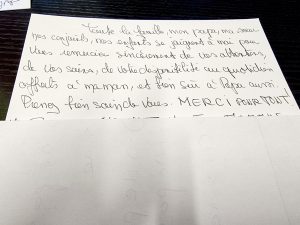 Toute la famille, mon papa, ma sœur
nos conjoints, nos enfants se joignent à moi pour
vous remercier sincèrement de vos attentions,
de vos soins, de votre disponibilité au quotidien
offerts à maman, et bien sûr à Papa aussi.
Prenez bien soin de vous. MERCI POUR TOUT!